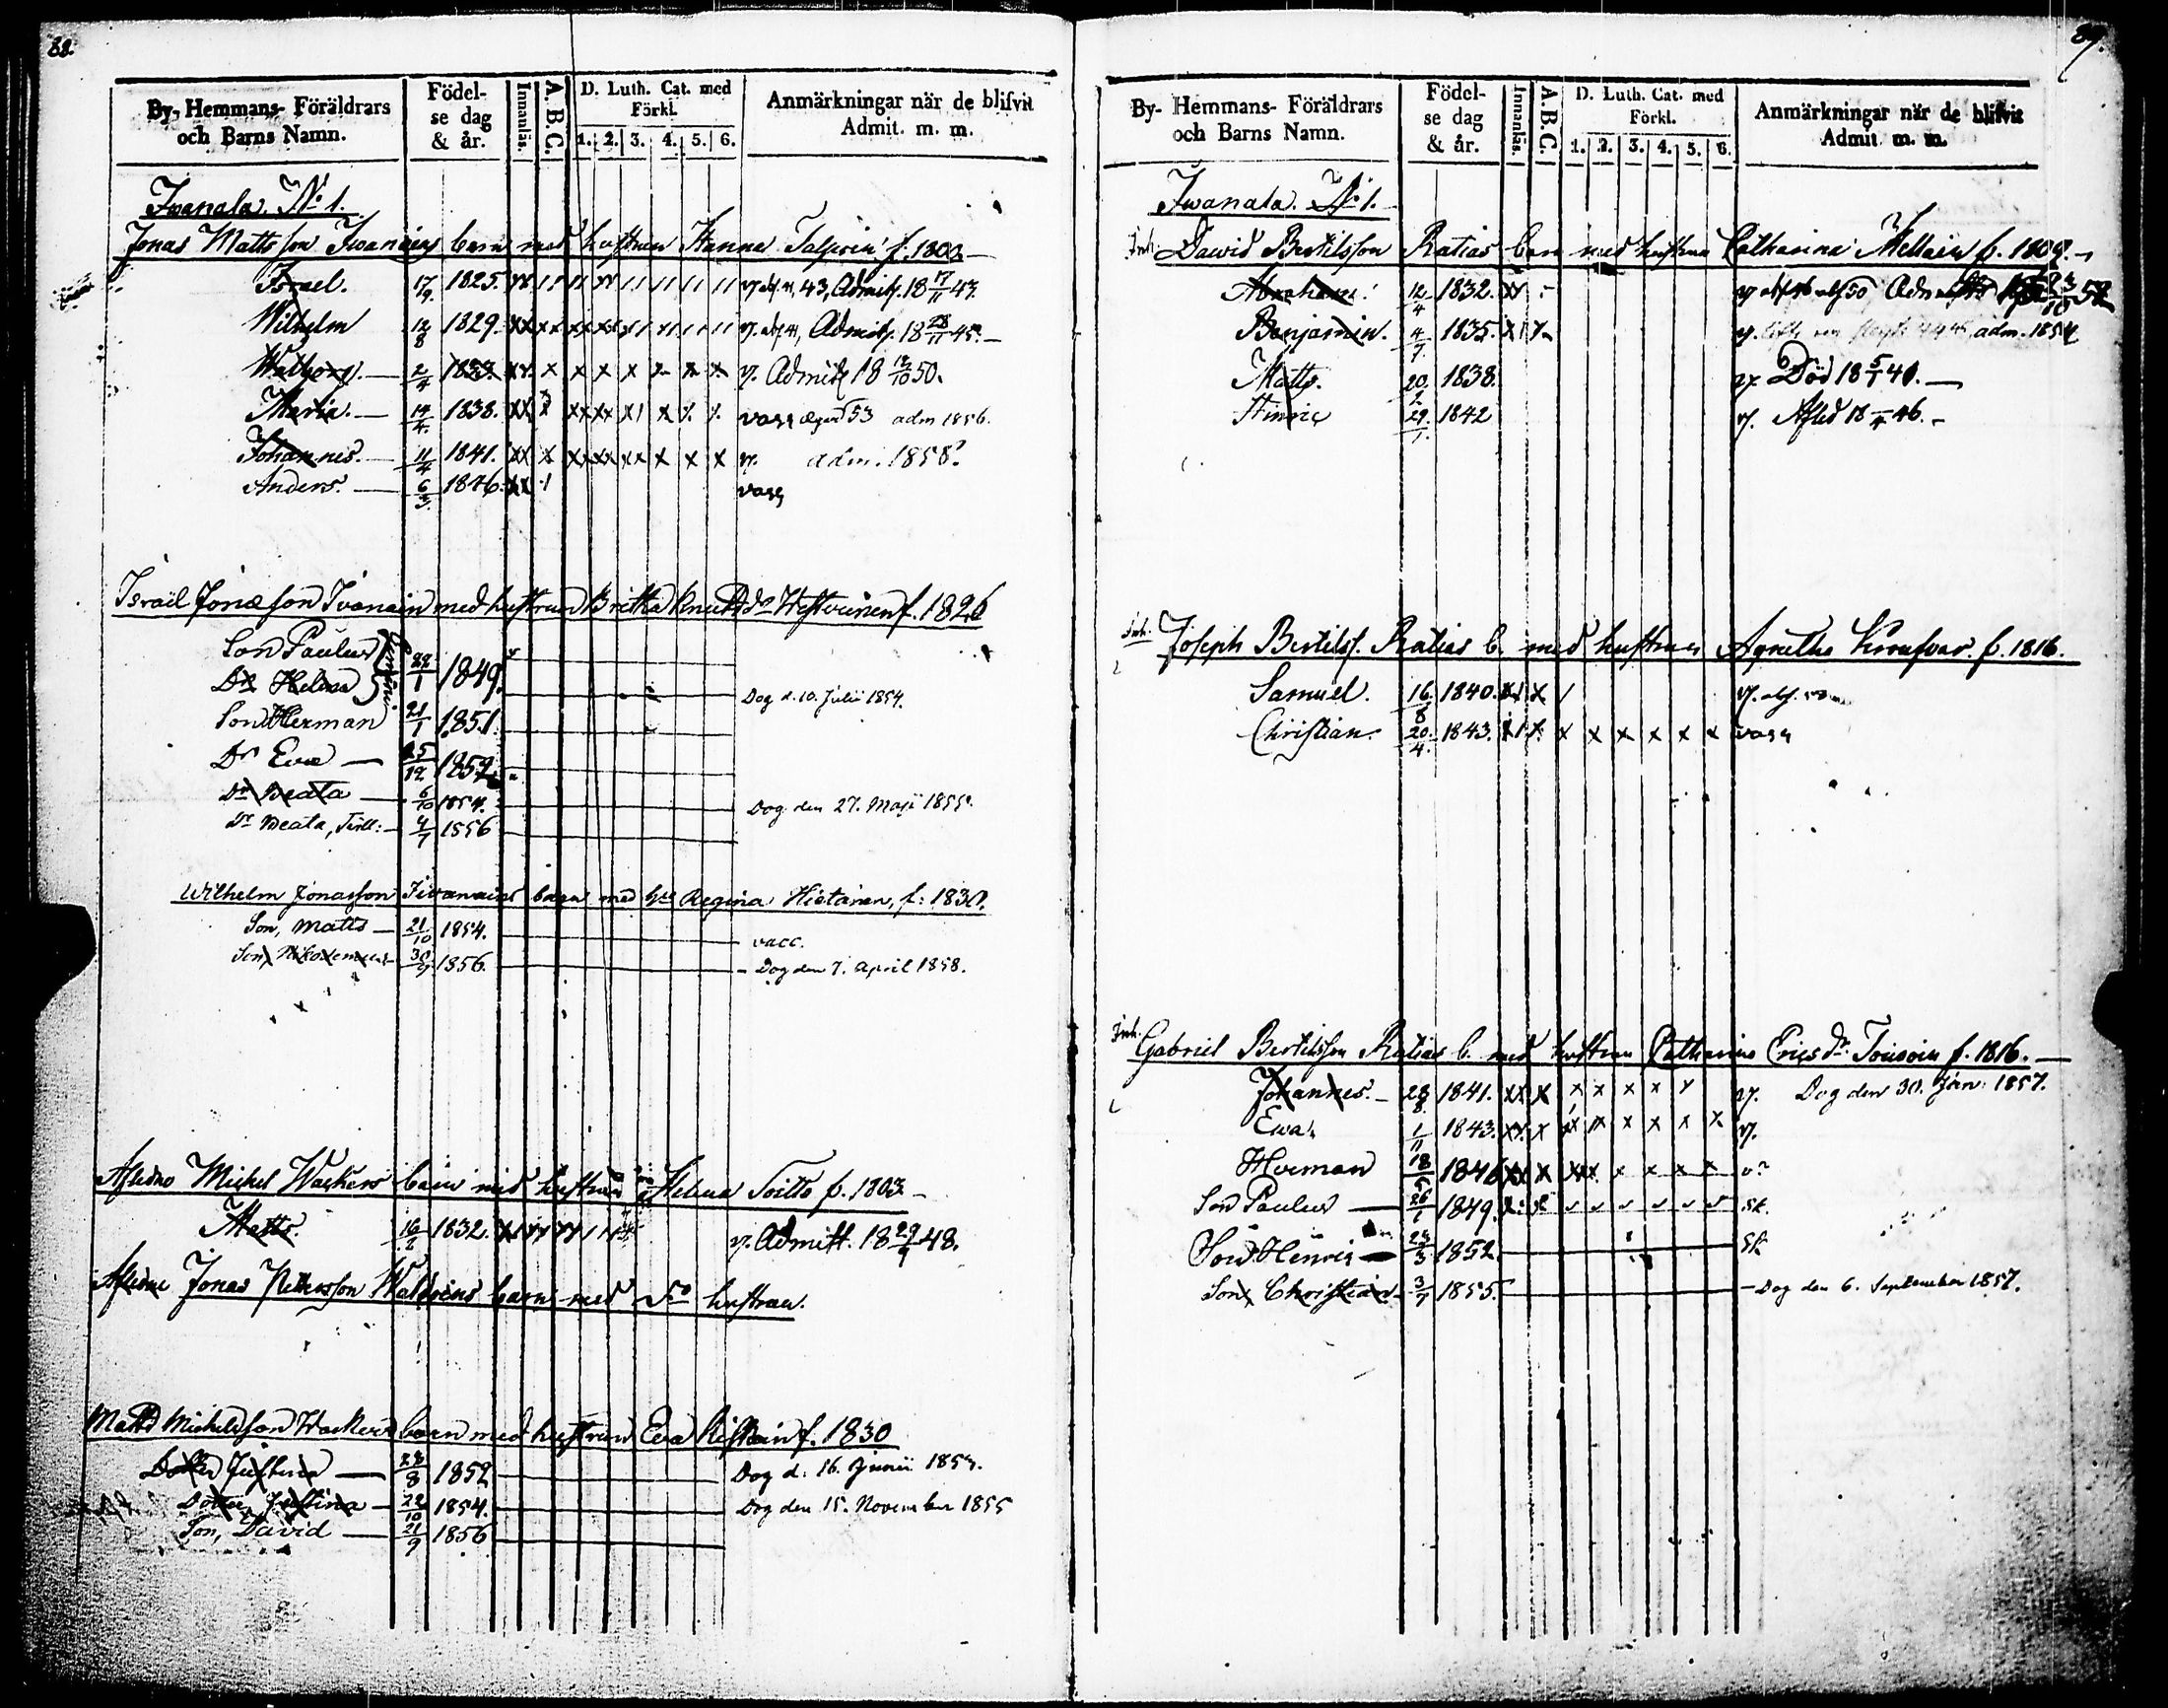 88.
By- Hemmans- Föräldrars och Barns Namn. Födel- se dag & år. Innanläs. A. B. C. D. Luth. Cat. med Förkl. 1. 2. 3. 4. 5. 6. Anmärkningar när de blifvit Admit. m. m.
Iwanala. No 1.
Jonas Mattsson Iwanains barn med hustrun Hanna f. 1803
Israel. 17/9 1825. Admitt. 18 17/11 43.
Wilhelm 12/8 1829. Admitt. 18 28/11 45.
Walborg. 2/4 1833. v. Admitt 18 12/10 50.
Maria. 14/4 1838. vacc 53 adm 1856.
Johannes. 11/4 1841. v. adm. 1858.
Anders. 6/3 1846. vacc
Israil Jonæson Ivanain med hustrun Britha Knuttsdr f. 1826
Son Paulus
Dr Helena 22/1 1849. Dog d. 10. Julii 1854.
Son Herman 21/1 1851.
Dr Eva 25/12 1852
Dr Beata 6/10 1854. Dog den 27. Maji 1855.
Dr Beata, 4/7 1856
Wilhelm Jonasson Iivanains barn med Regina Hietanen, f: 1830.
Son, Matts 21/10 1854. vacc.
Son, Nikodemus 30/9 1856. Dog den 7. April 1858.
Afledne Michel Wackers barn med hustrun Helena Soitto f. 1803
Matts. 16/2 1832. v. Admitt. 18 29/9 48.
Afledne Jonas Pettersson barn med do hustrun.
Matts Michelsson Wackers barn med hustrun Eva f. 1830
Dotter Justina 28/8 1852 Dog d. 16. Junii 1853.
Dotter Justina 22/10 1854. Dog den 15. November 1855
Son, David 21/9 1856
89.
By- Hemmans- Föräldrars och Barns Namn. Födel- se dag & år. Innanläs. A. B. C. D. Luth. Cat. med Förkl. 1. 2. 3. 4. 5. 6. Anmärkningar när de blifvit Admit. m. m.
Iwanala. No 1.
Inh. Dawid Bertilsson Ratias barn med hustrun Catharina f. 1809.
Abraham. 12/4 1832.
Benjamin. 4/7. 1835. adm. 1854
Matts. 20/2 1838. v. Död 18 5/1 40.
Hinric 29/1. 1842 v. Afled 46.
Inh. Joseph Bertilss. Ratias b. med hustrun Agnetha f. 1816.
Samuel. 16/8 1840.
Christian. 20/4. 1843. vacc
Inh. Gabriel Bertilsson Ratias b. med hustrun Catharina Ericsdr. f. 1816.
Johannes. 28/8. 1841. v. Dog den 30. Jan: 1857.
Ewa. 1/11 1843. v.
Herman 18/6 1846
Son Paulus 26/1 1849.
Son Henric 28/3 1852
Son Christian 3/7 1855. Dog den 6. September 1857.